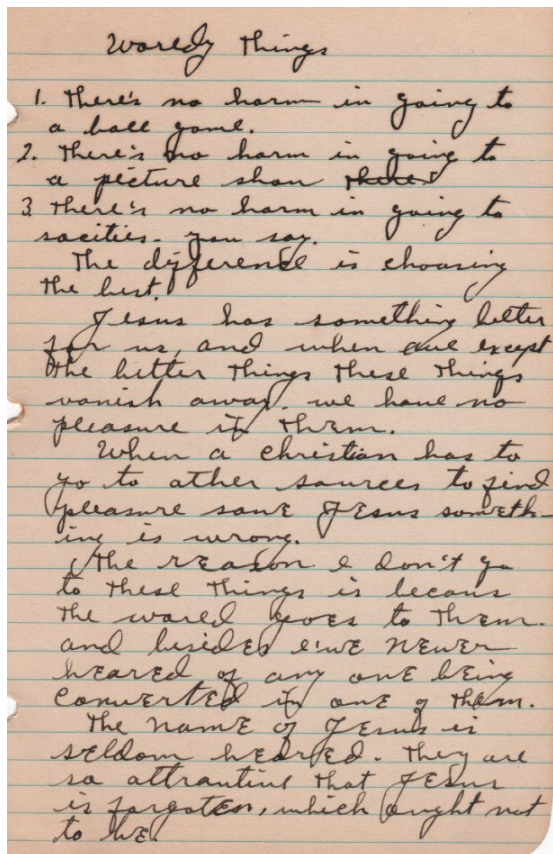 Woredly Things
1. There's no harm in going to
a ball game.
2. There's no harm in going to
a picture show
3. There's no harm in going to
socities. you say.
The difference is choosing
the best.
Jesus has something better
for us, and when we except
the better things these things
vanish away. we have no
pleasure in them.
When a christian has to
go to other sources to find
pleasure save Jesus someth-
ing is wrong.
The reason I don't go
to these things is becaus
the wored goes to them.
and besides I've never
heared of any one being
converted in one of them.
The name of Jesus is
seldom heared. They are
so attractive that Jesus
is forgoten, which ought not
to be.